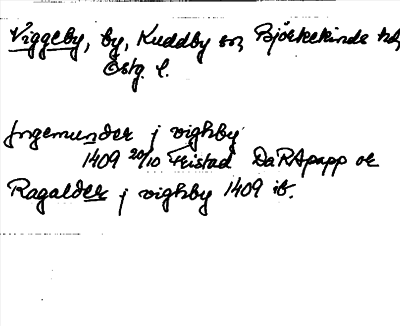 Viggeby, by, Kuddby sn, Björkekinds hd,
Östg. l.
Jngemunder j vighby
1409 20/10 Freistad DaRApapp ok
Ragalder j vighby 1409 ib.